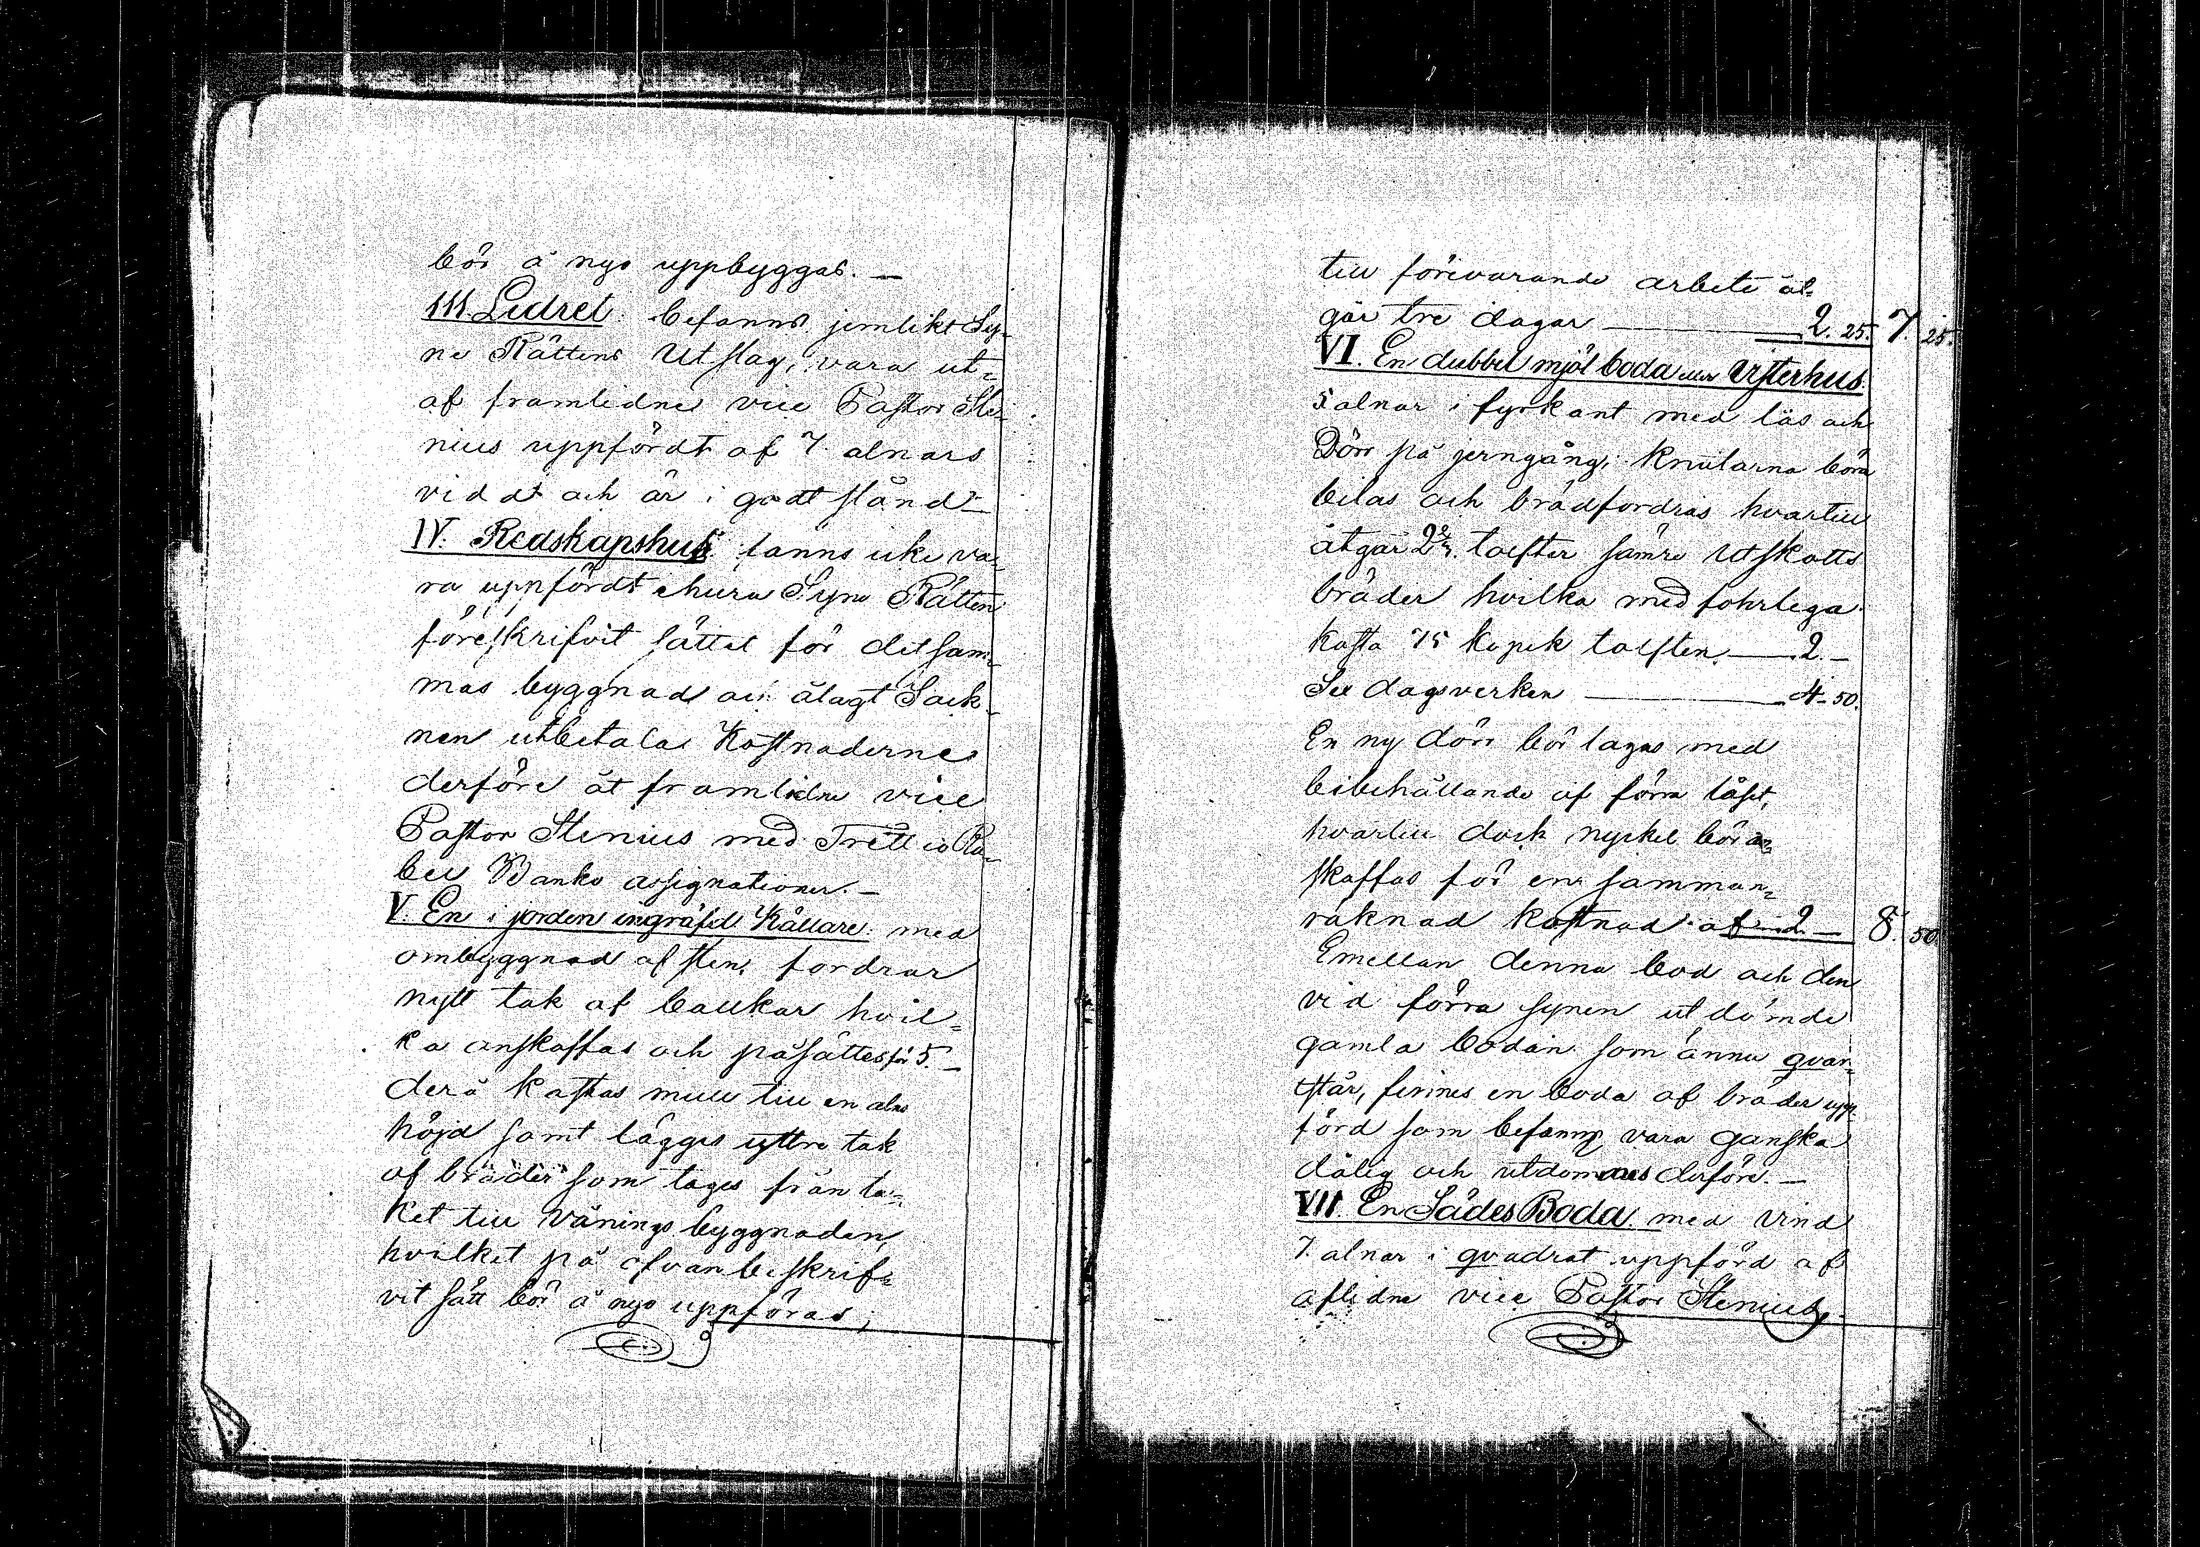 bör å nyo uppbyggas. —
III. Lidret. befanns jemlikt Sy-
ne Rättens Utslag, vara ut-
af framlidne vice Pastor Ste-
nius uppfördt af 7 alnars
viddt och är i godt stånd —
IV. Redskapshus: fanns icke va-
ra uppfördt ehuru Syne Rätten
föreskrifvit sättet för detsam-
mas byggnad och ålagt Sock-
nen utbetala Kostnaderne
derföre åt framlidne vice
Pastor Stenius med Trettio Ru-
bel Banko assignationer. —
V. En i jorden ingräfd Källare: med
ombyggnad af sten, fordrar
nytt tak af balkar hvil-
ka anskaffas och påsättes för 5. —
derå kastas mull till en alns
höjd samt lägges yttre tak
af bräder som tages från ta-
ket till Vånings byggnaden,
hvilket på ofvanbeskrif-
vit sätt bör å nyo uppföras;
till förevarande arbete åt-
går tre dagar — 2. 25. 7. 25.
VI. En dubbel mjöl boda eller Visterhus.
5 alnar i fyrkant med lås och
Dörr på jerngång; knutarna böra
bilas och brädfordras hvartill
åtgår tolfter sämre Utskotts
bräder hvilka med fohrlega
kosta 75 kopek tolften. — 2. —
Sex dagsverken — 4. 50.
En ny dörr bör lagas med
bibehållande af förra låset,
hvartill dock nyckel bör an-
skaffas för en samman-
räknad kostnad af 2. — 8. 50.
Emellan denna bod och den
vid förra synen utdömde
gamla bodan som ännu qvar-
står, finnes en boda af bräder upp-
förd som befanns vara ganska
dålig och utdömmes derföre. —
VII. En Sädes Boda. med Vind
7. alnar i qvadrat uppförd af
aflidne vice Pastor Stenius,